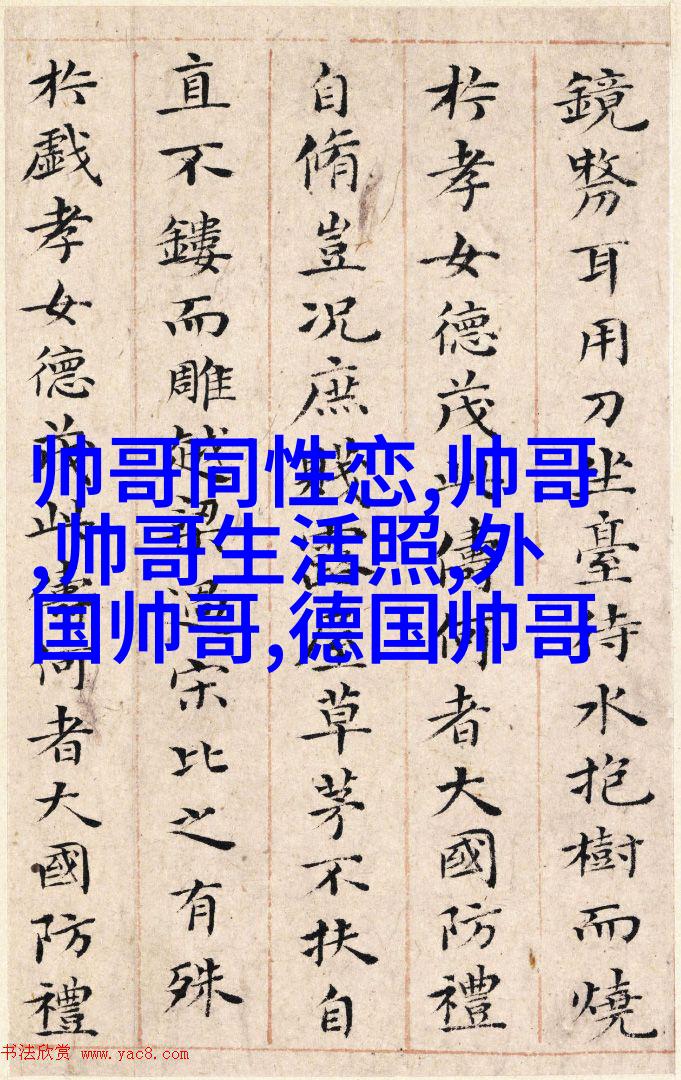 鏡剺耳用刀坐臺待水抱樹而燒
於孝女德茂此儔何者大國防禮
自脩豈況庶賤露屋草茅不扶自
直不鏤而雕越過宋比之有殊
於戲孝女德茂此儔何者大國防禮
帅哥同性恋,帅哥
,帅哥生活照,外
国帅哥,德国帅哥
书法欣赏 www.yac8.com